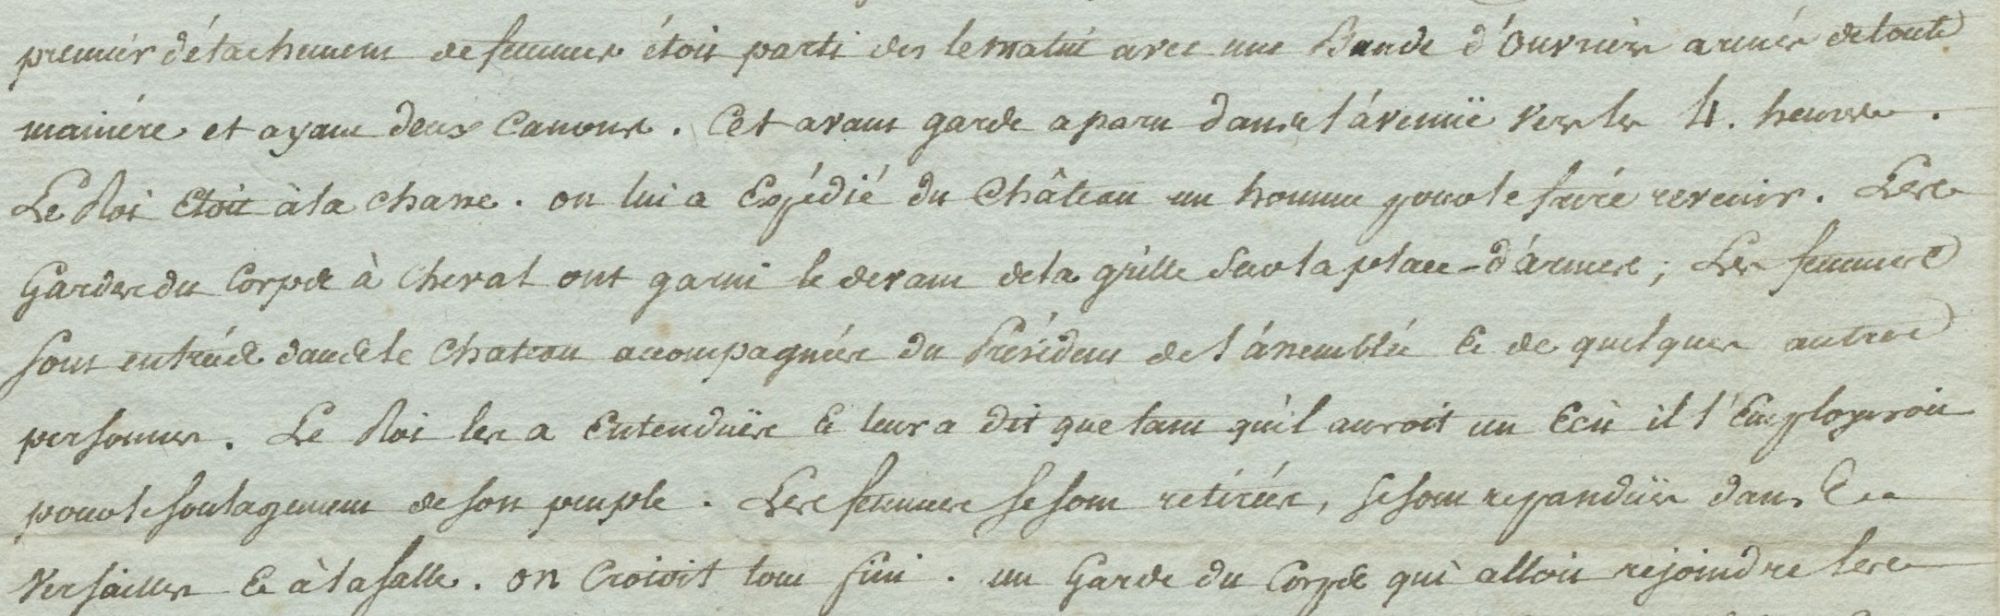 premier détachement de femmes étoit parti dès le matin avec une Bande d'Ouvriers armés de toute
maniére et ayant deux Canons. Cet avant garde a paru dans l'ávenuë vers les 4. heures.
Le Roi etoit à la chasse. on lui a Expédié du Château un homme pour le faire revenir. Les
Gardes du Corps à cheval ont garni le devant de la grille sur la place-d'armes; Les femmes
sont entrées dans le Chateau accompagnées du Président de l'ássemblée & de quelques autres
personnes. Le Roi les a Entenduës & leur a dit que tant qu'il auroit un Ecu il l'Employeroit
pour le soulagement de son peuple. Les femmes se sont retirées, se sont repanduës dans
Versailles & à la salle. on Croioit tout fini. un Garde du Corps qui alloit rejoindre les